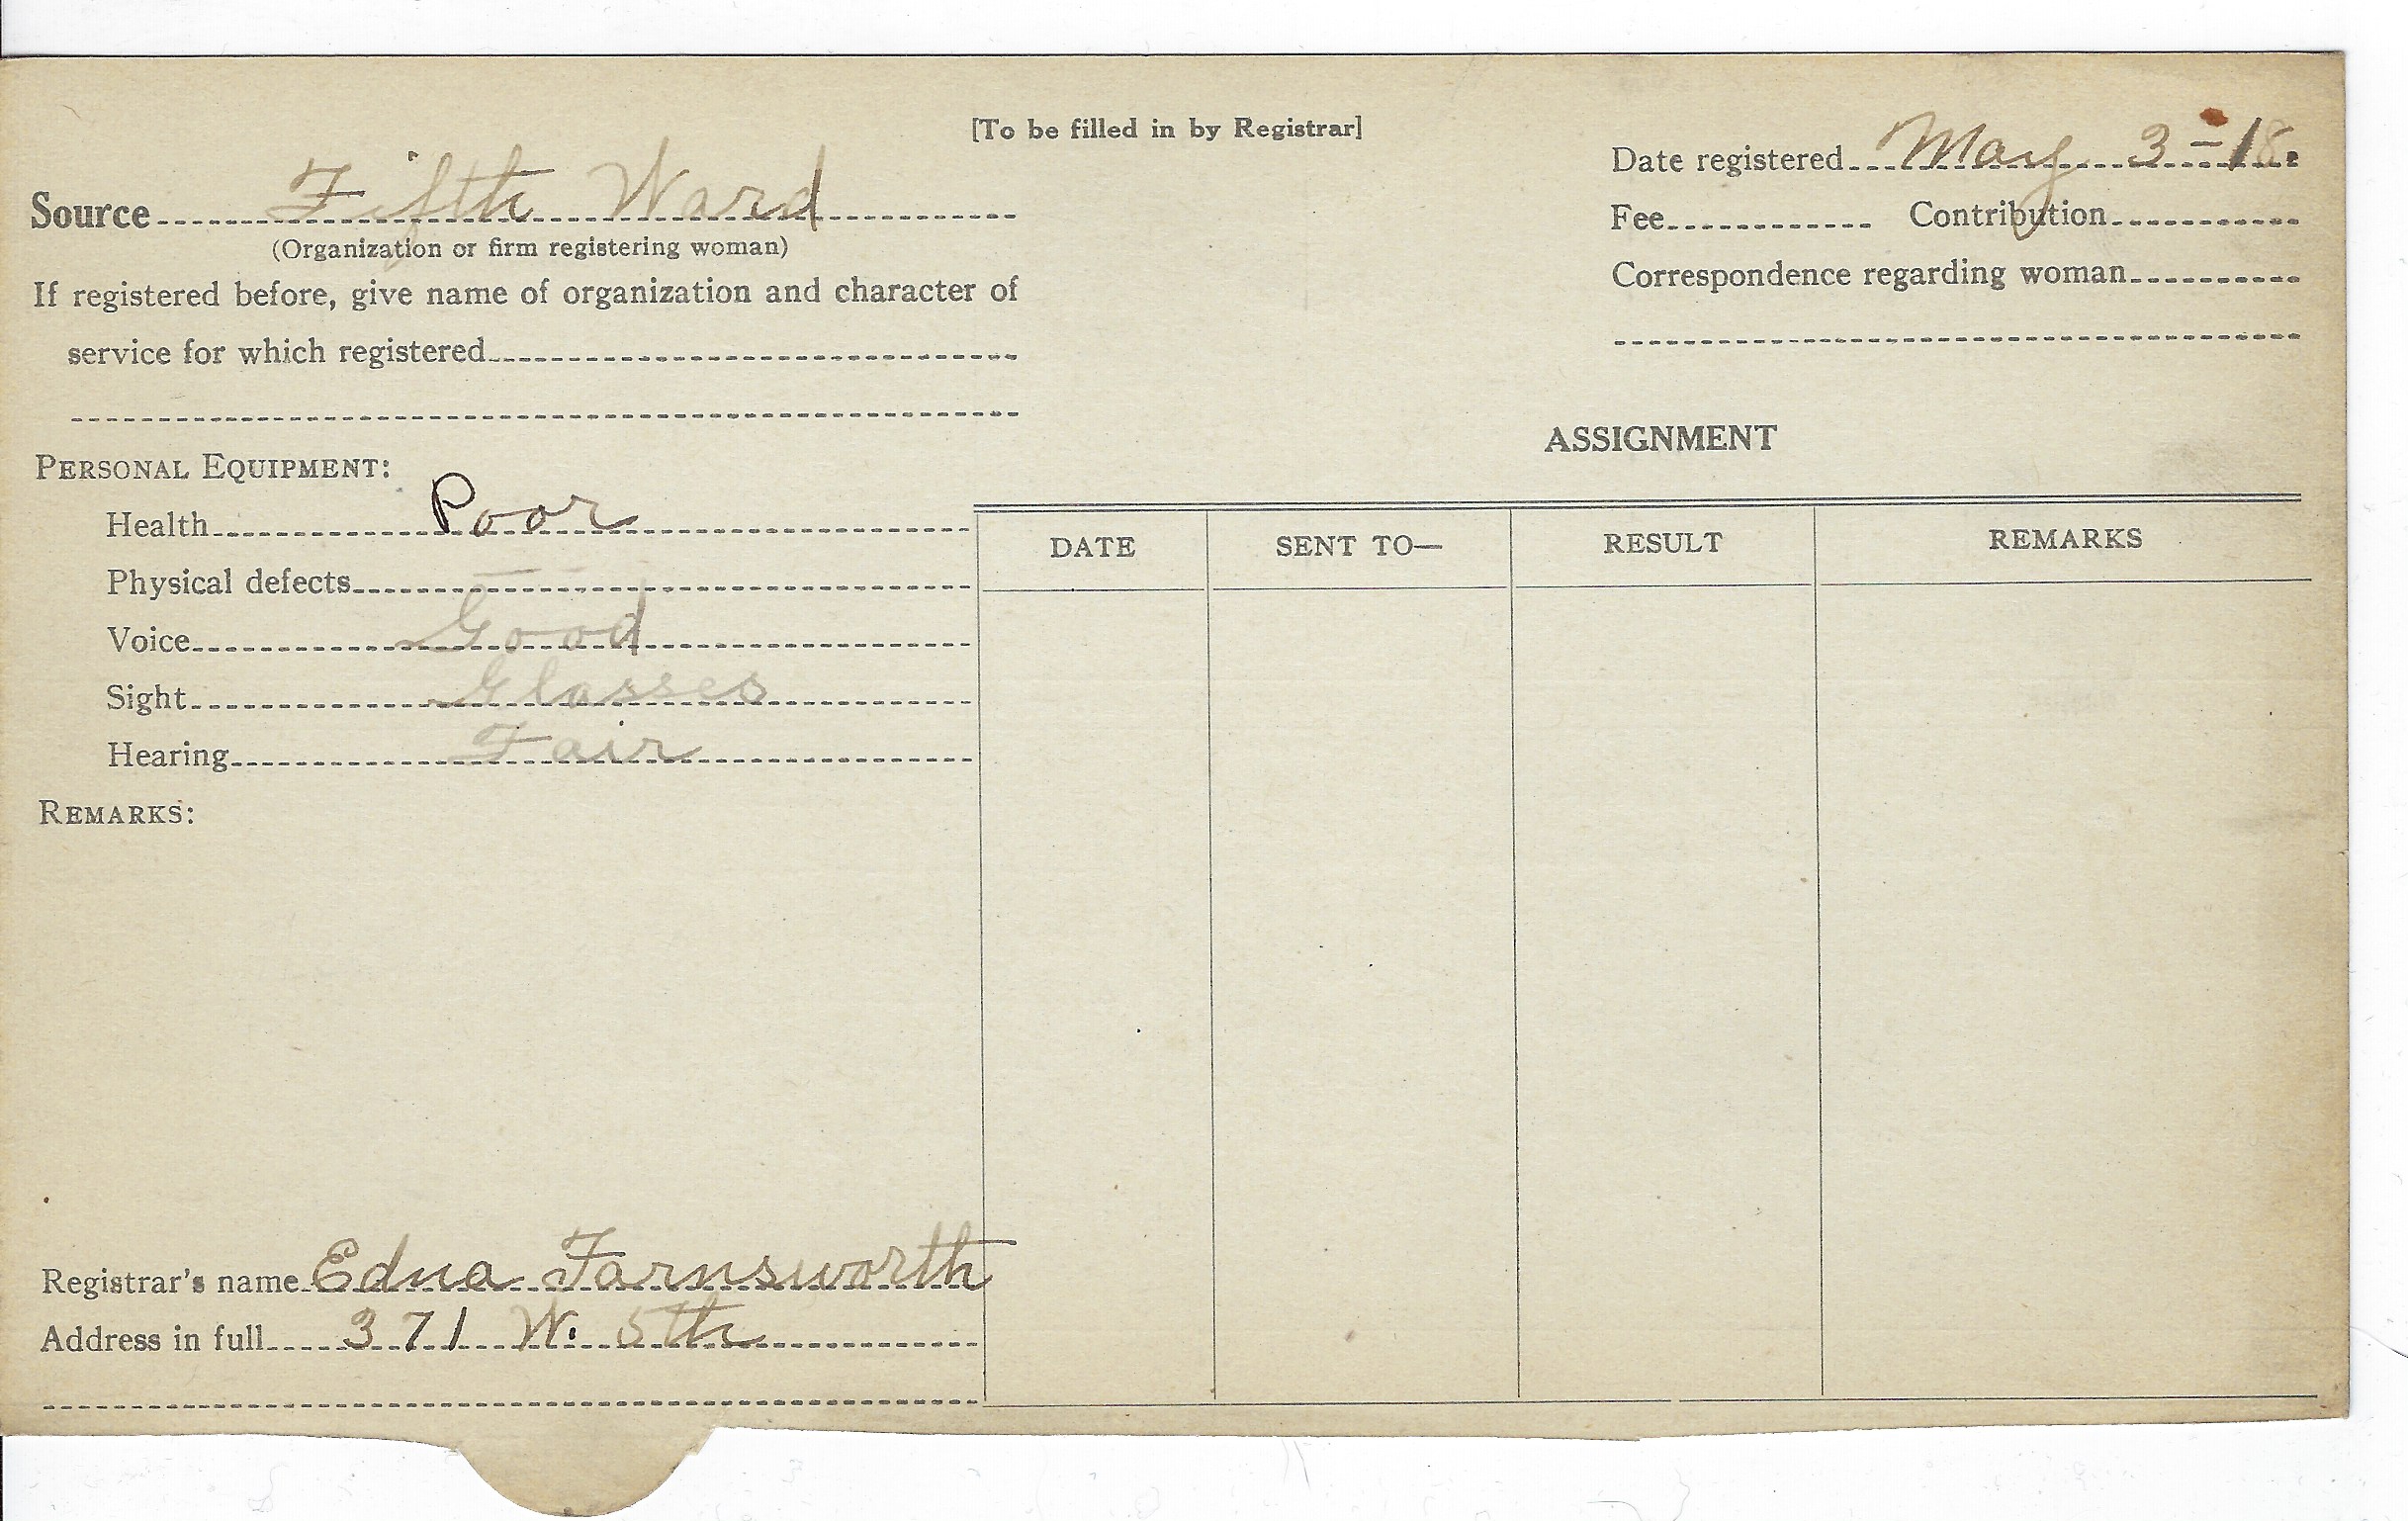 [To be filled in by Registrar]
Source Fifth Ward
(Organization or firm registering woman)
If registered before, give name of organization and character of
service for which registered
Date registered May 3 - 18.
Fee Contribution
Correspondence regarding woman
PERSONAL EQUIPMENT:
Health Poor
Physical defects — —
Voice Good
Sight Glasses
Hearing Fair
REMARKS:
Registrar's name Edna Farnsworth
Address in full 371 W. 5th
ASSIGNMENT
DATE SENT TO— RESULT REMARKS